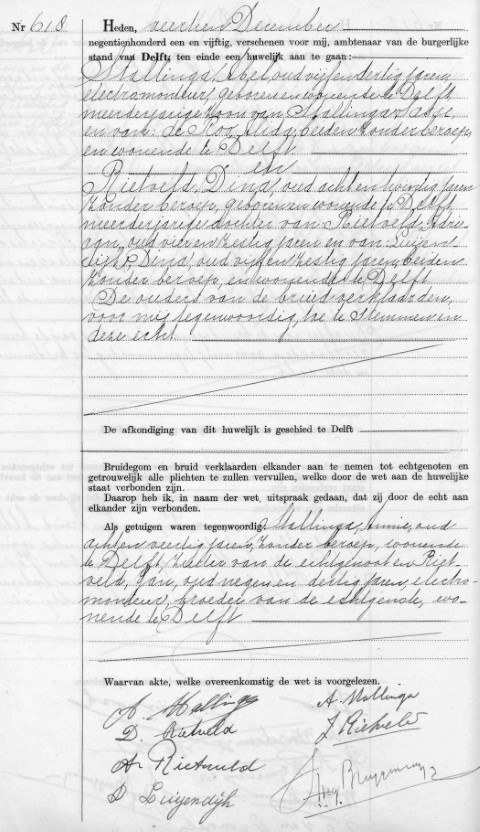 Nr 618 Heden, veertien December
negentienhonderd een en vijftig, verschenen voor mij, ambtenaar van de burgerlijke
stand van Delft, ten einde een huwelijk aan te gaan:
Stallinga, Abel, oud vijf en dertig jaren,
electromonteur, geboren en wonende te Delft,
meerderjarige zoon van Stallinga,
en van de Koo, Alida, beiden zonder beroep,
en wonende te Delft
en
Rietveld, Dina, oud acht en twintig jaren
zonder beroep, geboren en wonende te Delft
meerderjarige dochter van Rietveld, Adri-
aan, oud vier en zestig jaren en van Luijen-
dijk, Dina, oud vijf en zestig jaren, beiden
zonder beroep, en wonende te Delft
De ouders van de bruid verklaarden,
voor mij tegenwoordig, toe te stemmen in
deze echt
De afkondiging van dit huwelijk is geschied te Delft
Bruidegom en bruid verklaarden elkander aan te nemen tot echtgenoten en
getrouwelijk alle plichten te zullen vervullen, welke door de wet aan de huwelijke
staat verbonden zijn.
Daarop heb ik, in naam der wet, uitspraak gedaan, dat zij door de echt aan
elkander zijn verbonden.
Als getuigen waren tegenwoordig: Stallinga, Annie, oud
acht en veertig jaren, zonder beroep, wonende
te Delft, zuster van de echtgenoot en Riet-
veld, Jan, oud negen en dertig jaren, electro-
monteur, broeder van de echtgenote, wo-
nende te Delft
Waarvan akte, welke overeenkomstig de wet is voorgelezen.
A. Stallinga A. Stallinga
D. Rietveld J. Rietveld
A. Rietveld
D Luijendijk